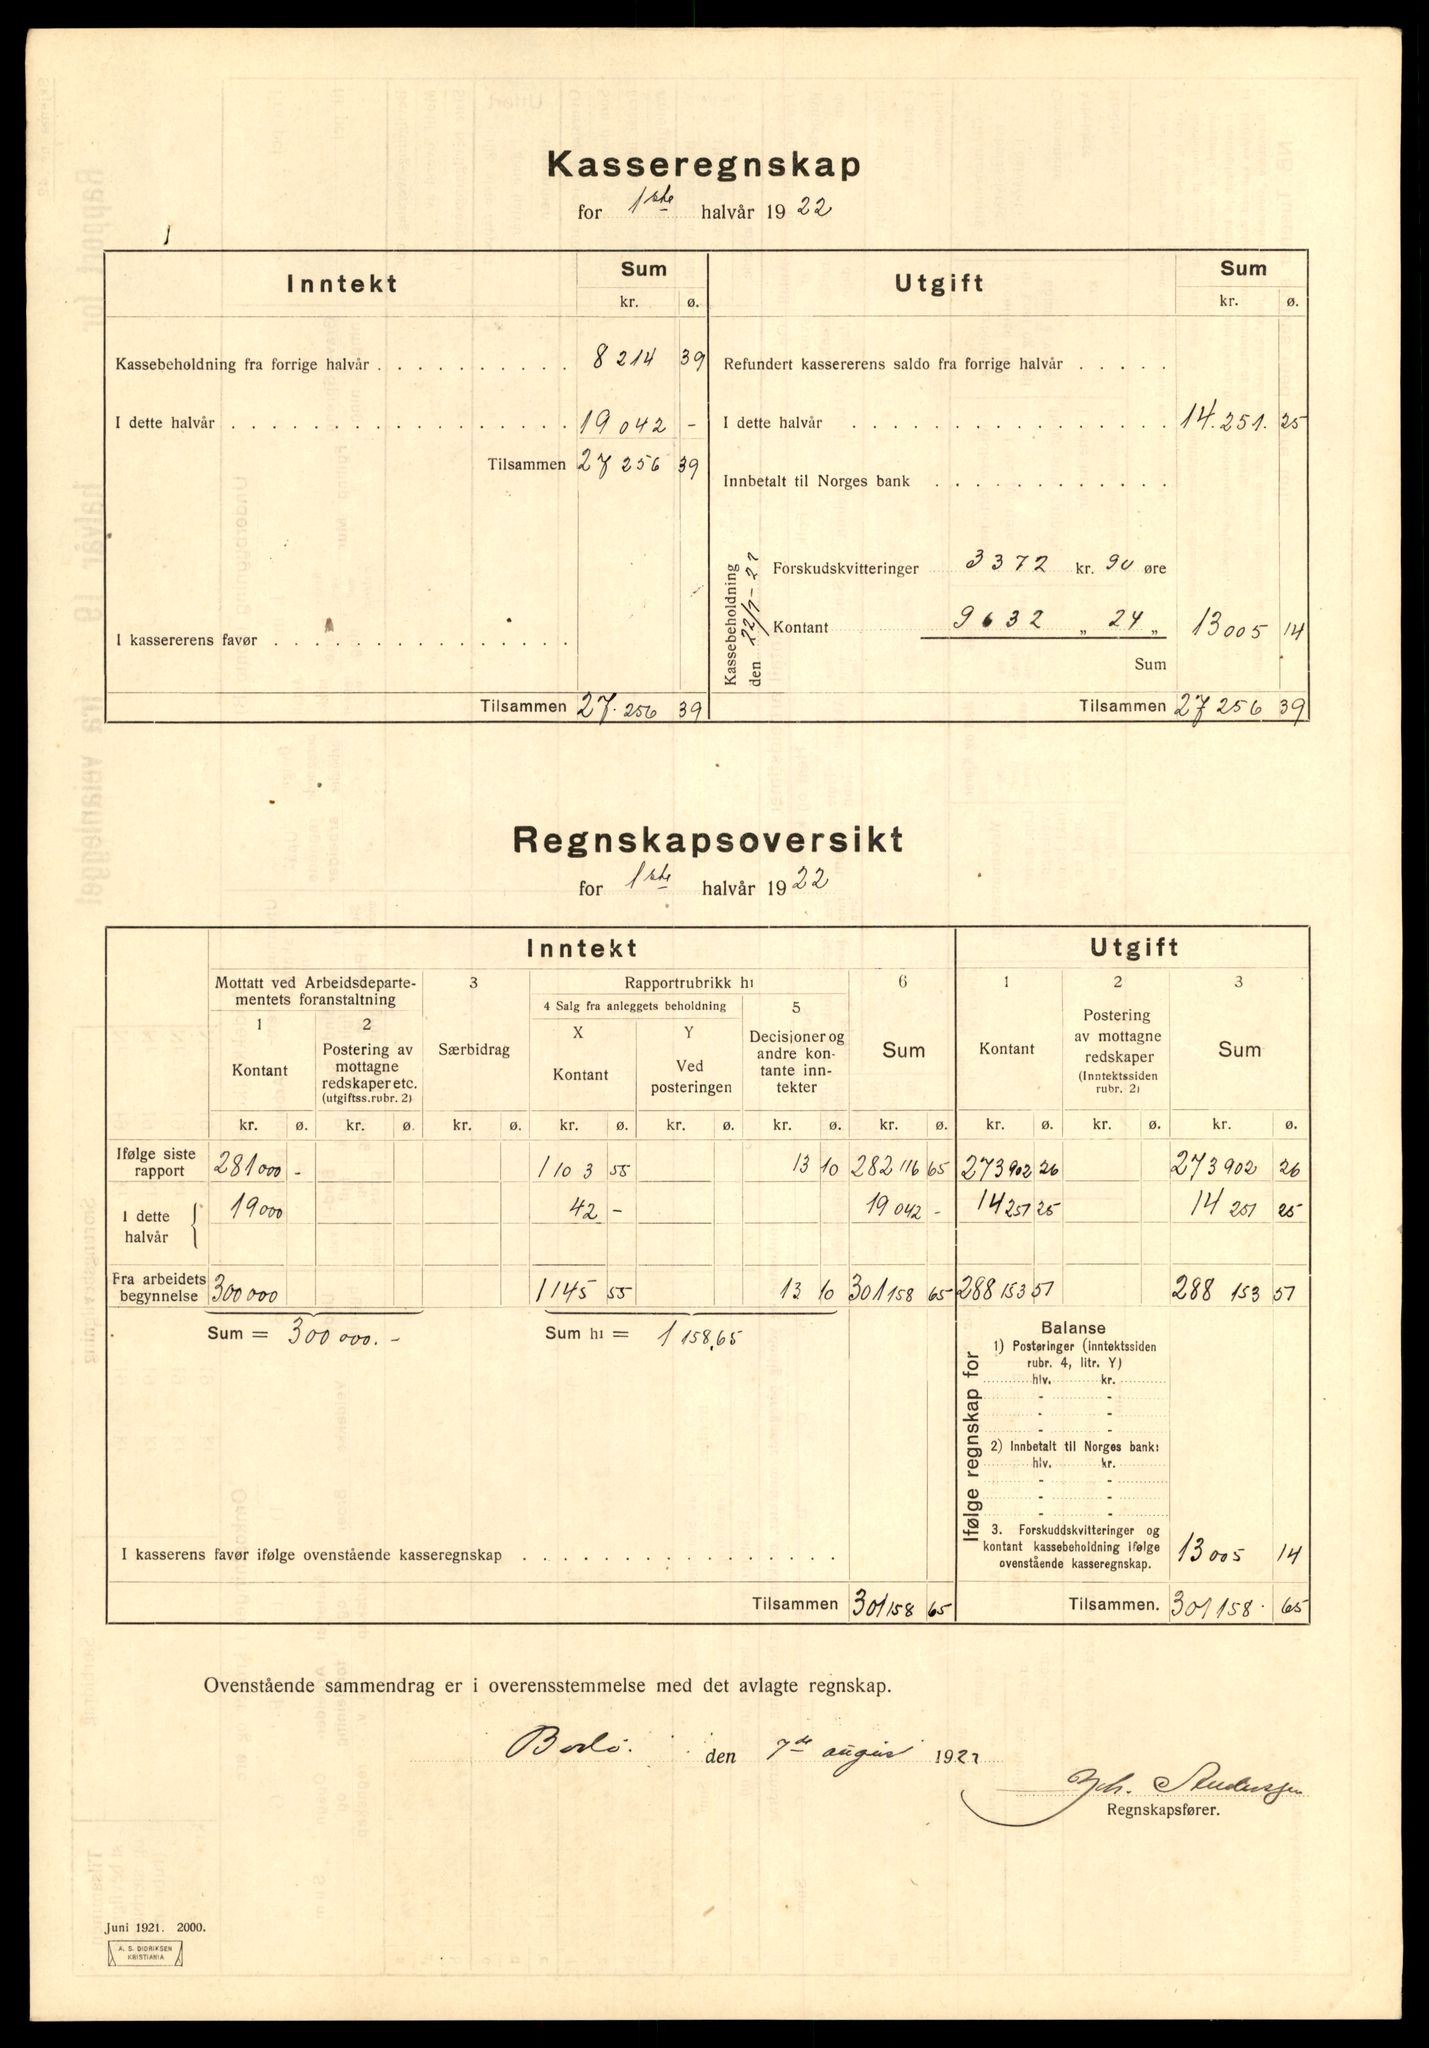 Kasseregnskap
for 1ste halvår 1922
Inntekt Sum Utgift Sum
kr. ø. kr. ø.
Kassebeholdning fra forrige halvår . . . . . . . . . . 8 214 39 Refundert kassererens saldo fra forrige halvår . . . . .
I dette halvår . . . . . . . . . . . . . . . . . 19 042 - I dette halvår . . . . . . . . . . . . . . . 14.251. 25
Tilsammen 27 256 39
Innbetalt til Norges bank . . . . . . . . . . .
Kassebeholdning
den 22/7-22
Forskudskvitteringer 3372 kr. 90 øre
Kontant 9632 „ 24 „ 13005 14
I kassererens favør . . . . . . . . . . . . . . .
Sum
Tilsammen 27.256 39 Tilsammen 27256 39
Regnskapsoversikt
for 1ste halvår 1922
Inntekt Utgift
Mottatt ved Arbeidsdeparte-
mentets foranstaltning
3
Rapportrubrikk h1
6 1 2 3
4 Salg fra anleggets beholdning
5
1 2 X Y
Kontant
Postering av
mottagne
redskaper etc.
(utgiftss. rubr. 2)
Særbidrag
Kontant
Ved
posteringen
Decisjoner og
andre kon-
tante inn-
tekter
Sum
Kontant
Postering
av mottagne
redskaper
(Inntektssiden
rubr. 2)
Sum
kr. ø. kr. ø. kr. ø. kr. ø. kr. ø. kr. ø. kr. ø. kr. ø. kr. ø. kr. ø.
Ifølge siste
rapport 281000 - 1 103 55 13 10 282116 65 273902 26 273902 26
I dette
halvår 19000 42 - 19042 - 14251 25 14251 25
Fra arbeidets
begynnelse 300000 1145 55 13 10 301158 65 288153 51 288 153 51
Sum = 300000.- Sum h1 = 1158,65
Ifølge regnskap for
Balanse
1) Posteringer (inntektssiden
rubr. 4, litr. Y)
hlv. kr.
- -
- -
- -
2) Innbetalt til Norges bank:
hlv. kr.
- -
- -
- -
3. Forskuddskvitteringer og
kontant kassebeholdning ifølge
ovenstående kasseregnskap. 13005 14
I kasserens favør ifølge ovenstående kasseregnskap . . . . . . . . . . . . . . .
Tilsammen 301158 65 Tilsammen. 301158. 65
Ovenstående sammendrag er i overensstemmelse med det avlagte regnskap.
Bodö. den 7de august 1922
Joh. Anderssen
Regnskapsfører.
Juni 1921. 2000.
A. S. DIDRIKSEN
KRISTIANIA